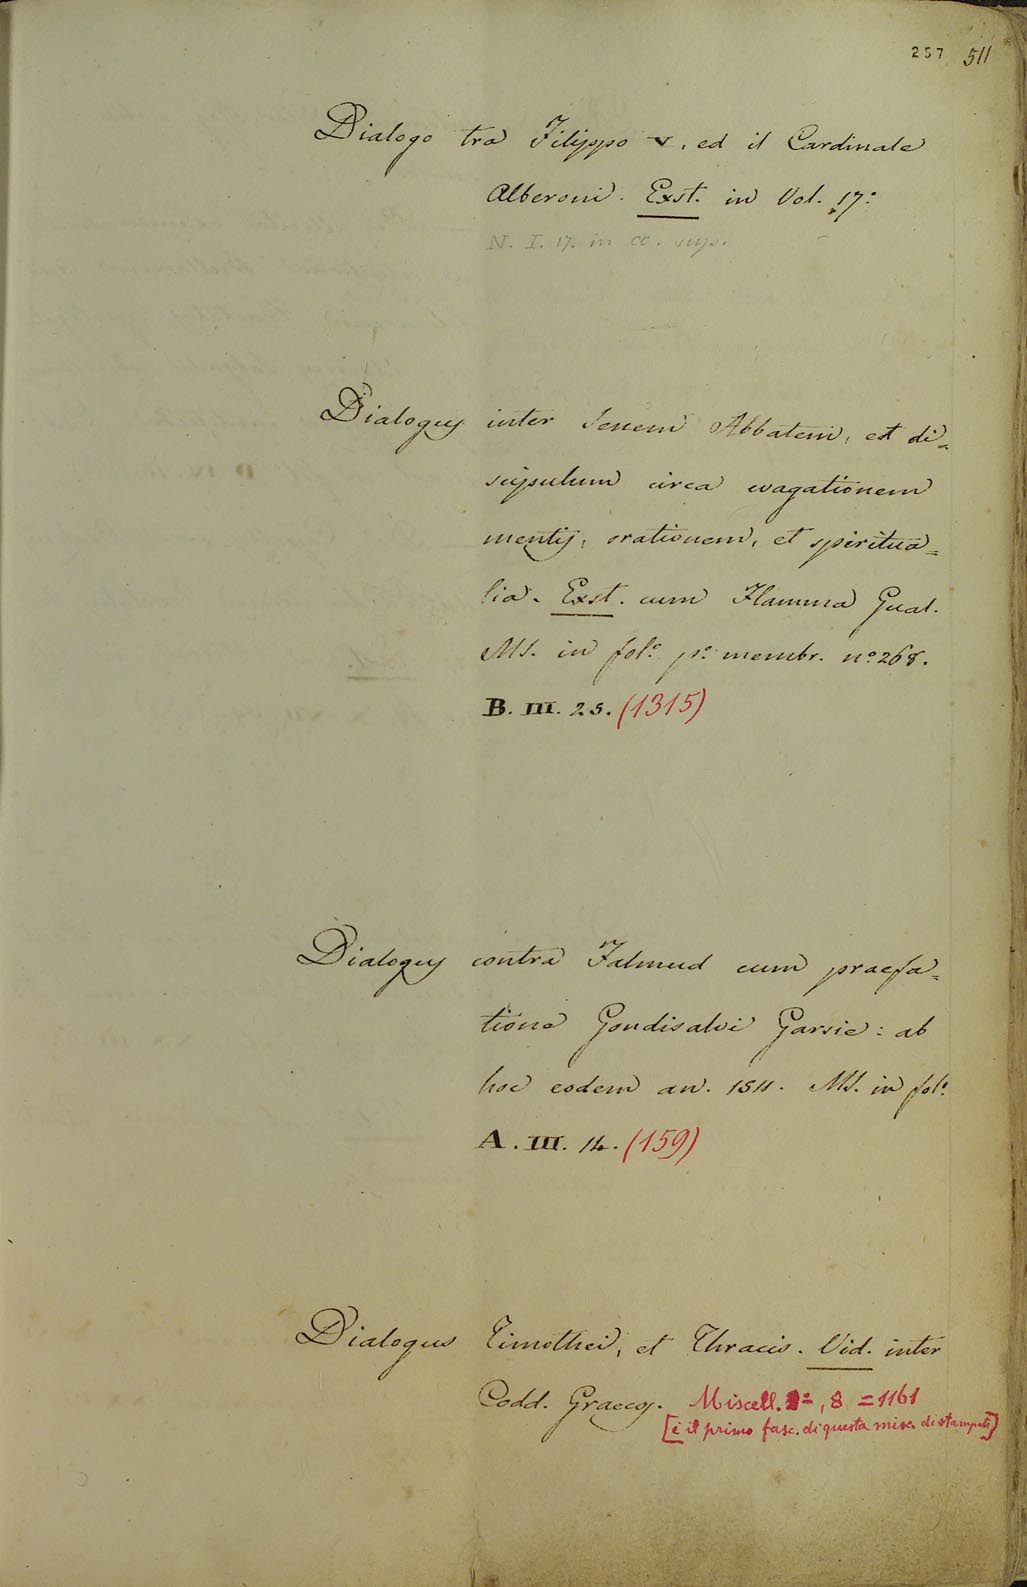 257 511
Dialogo tra Filippo V, ed il Cardinale
Alberoni. Exst. in Vol. 17.
N. I. 17. in cc. sup.
Dialogus inter Senem Abbatem, et di-
scipulum circa evagationem
mentis, orationem, et spiritua=
lia. Exst. cum Flamma Gual.
MS. in fol.º p.º membr. nº 268.
B. III. 25. (1315)
Dialogus contra Talmud cum praefa=
tione Gondisalvi Garsie: ab
hoc eodem an. 1511. MS. in fol.º
A. III. 14. (159)
Dialogus Timothei, et Thracis. Vid. inter
Codd. Graecos. Miscell. , 8 = 1161
[è il primo fasc. di questa misc. di stampati]